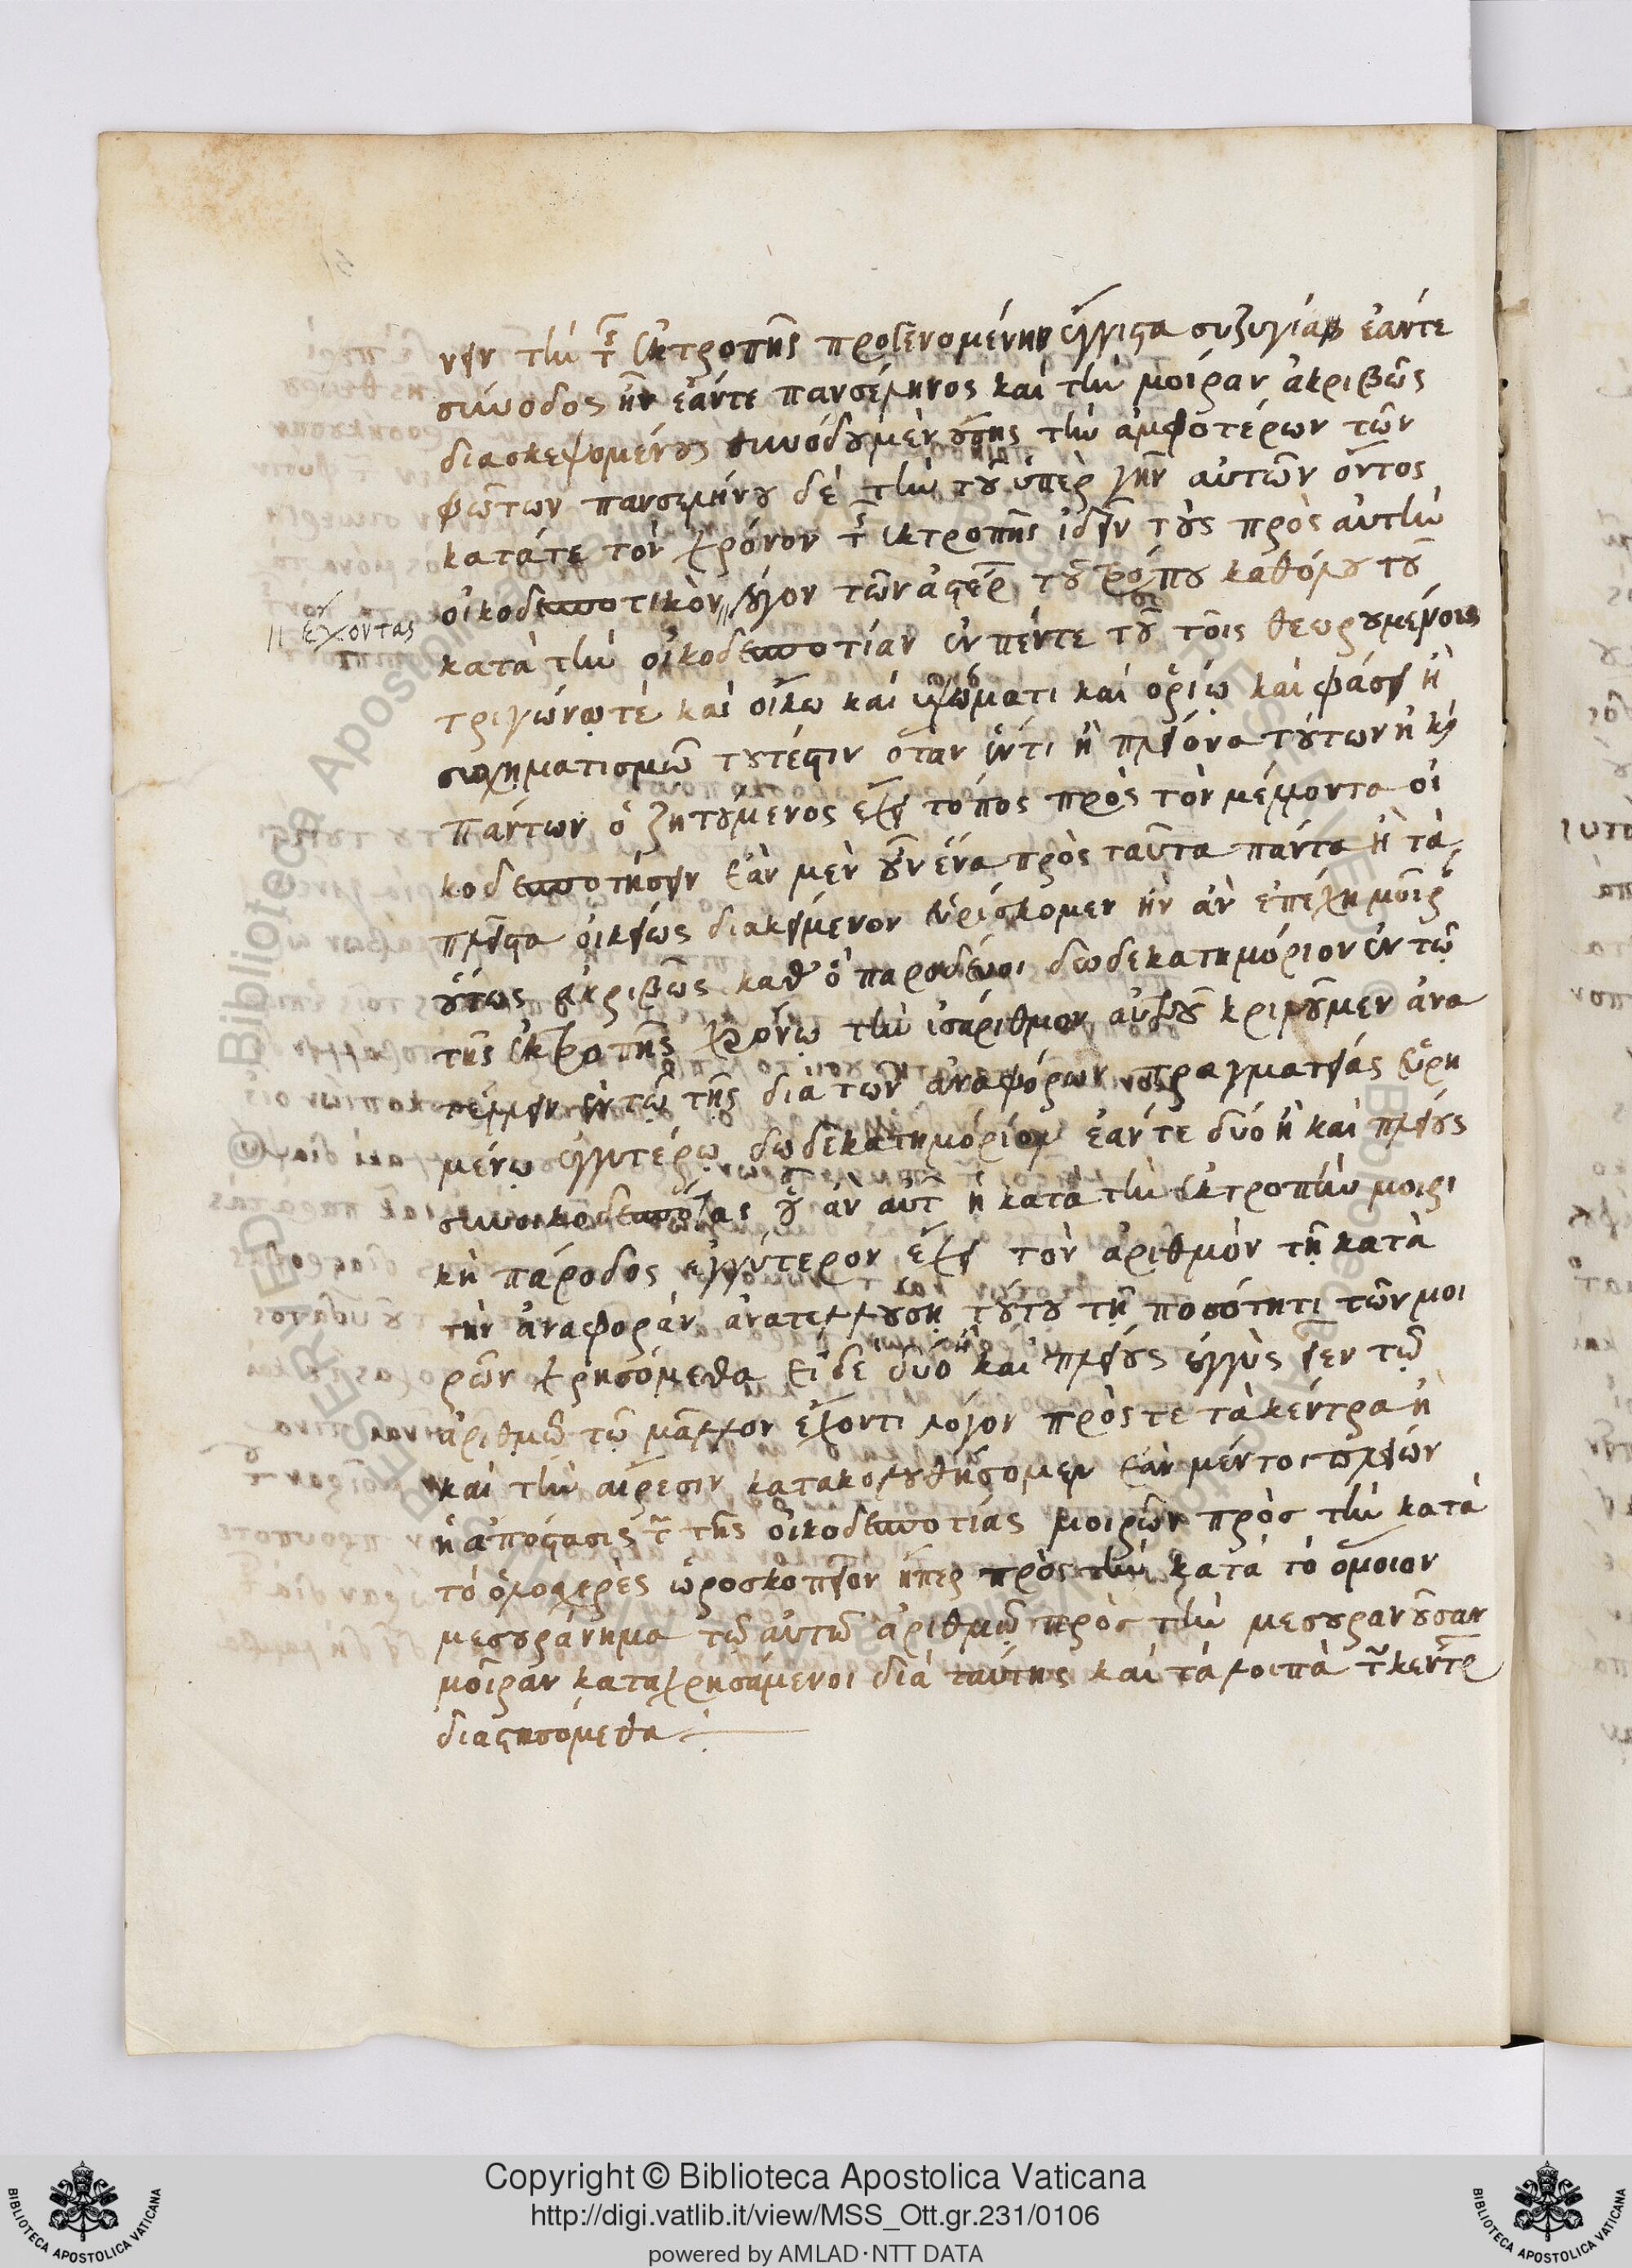 νειν τὴν τῆς ἐκτροπῆς προγενομένην ἔγγιστα συζυγίαν ἐάν τε
σύνοδος ἦν ἐάν τε πανσέληνος καὶ τὴν μοίραν ἀκριβῶς
διασκεψομένους συνόδου μὲν οὔσης τὴν ἀμφοτέρων τῶν
φώτων πανσελήνου δὲ τὴν τοῦ ὑπὲρ γῆν αὐτῶν ὄντος
κατά τε τὸν χρόνον τῆς ἐκτροπῆς ἰδεῖν τοὺς πρὸς αὐτὴν
οἰκοδεσποτικὸν λόγον τῶν ἀστέρων τοῦ τρόπου καθόλου τοῦ
ἔχοντας
κατὰ τὴν οἰκοδεσποτίαν ἐν πέντε τού τοῖς θεωρουμένοις
τριγώνῳ τέ καὶ οἴκῳ καὶ ὑψώματι καὶ ὁρίῳ καὶ φάσει ἢ
συσχηματισμῷ τουτέστιν ὅταν ἕν τι ἢ πλείονα τούτων ἢ καὶ
πάντων ὁ ζητούμενος ἔχει τόπος πρὸς τὸν μέλλοντα οἰ
κοδεσποτήσειν ἐὰν μὲν οὖν ἕνα πρὸς ταῦτα πάντα ἢ τὰ
πλεῖστα οἰκείως διακείμενον εὑρίσκομεν ἣν ἂν ἐπέχῃ μοῖραν
οὗτος ἀκριβῶς καθ' ὃ παροδεύει δωδεκατημόριον ἐν τῷ
τῆς ἐκτροπῆς χρόνῳ τὴν ἰσάριθμον αὐτοῦ κρινοῦμεν ἀνα
τέλλειν ἐν τῷ τῆς διὰ τῶν ἀναφόρων πραγματείας εὑρη
μένῳ ἐγγυτέρῳ δωδεκατημόριον ἐάν τε δύο ἢ καὶ πλείους
συνοικοδεσπότας οὗ ἂν αὐτῶν ἡ κατὰ τὴν ἐκτροπὴν μοιρι
κὴ πάροδος ἐγγύτερον ἔχει τὸν ἀριθμὸν τῇ κατὰ
τὴν ἀναφορὰν ἀνατελλούσῃ τούτου τῇ ποσότητι τῶν μοι
ρῶν χρησόμεθα εἰ δὲ δύο ἢ καὶ πλείους ἐγγὺς εἶεν τῷ
ἀριθμῷ τῷ μᾶλλον ἔχοντι λόγον πρός τε τὰ κέντρα ἢ
καὶ τὴν αἵρεσιν κατακολουθήσομεν ἐὰν μέντοι πλείων
ἡ ἀπόστασις ᾖ τῆς οἰκοδεσποτίας μοιρῶν πρὸς τὴν κατὰ
τὸ ὁλοσχερὲς ὡροσκοπεῖον ἤπερ πρὸς τὴν κατὰ τὸ ὅμοιον
μεσουράνημα τῷ αὐτῷ ἀριθμῷ πρὸς τὴν μεσουρανοῦσαν
μοῖραν καταχρησάμενοι διὰ ταύτης καὶ τὰ λοιπὰ τῶν κέντρων
διαστησόμεθα
Copyright © Biblioteca Apostolica Vaticana
http://digi.vatlib.it/view/MSS_Ott.gr.231/0106
powered by AMLAD·NTT DATA